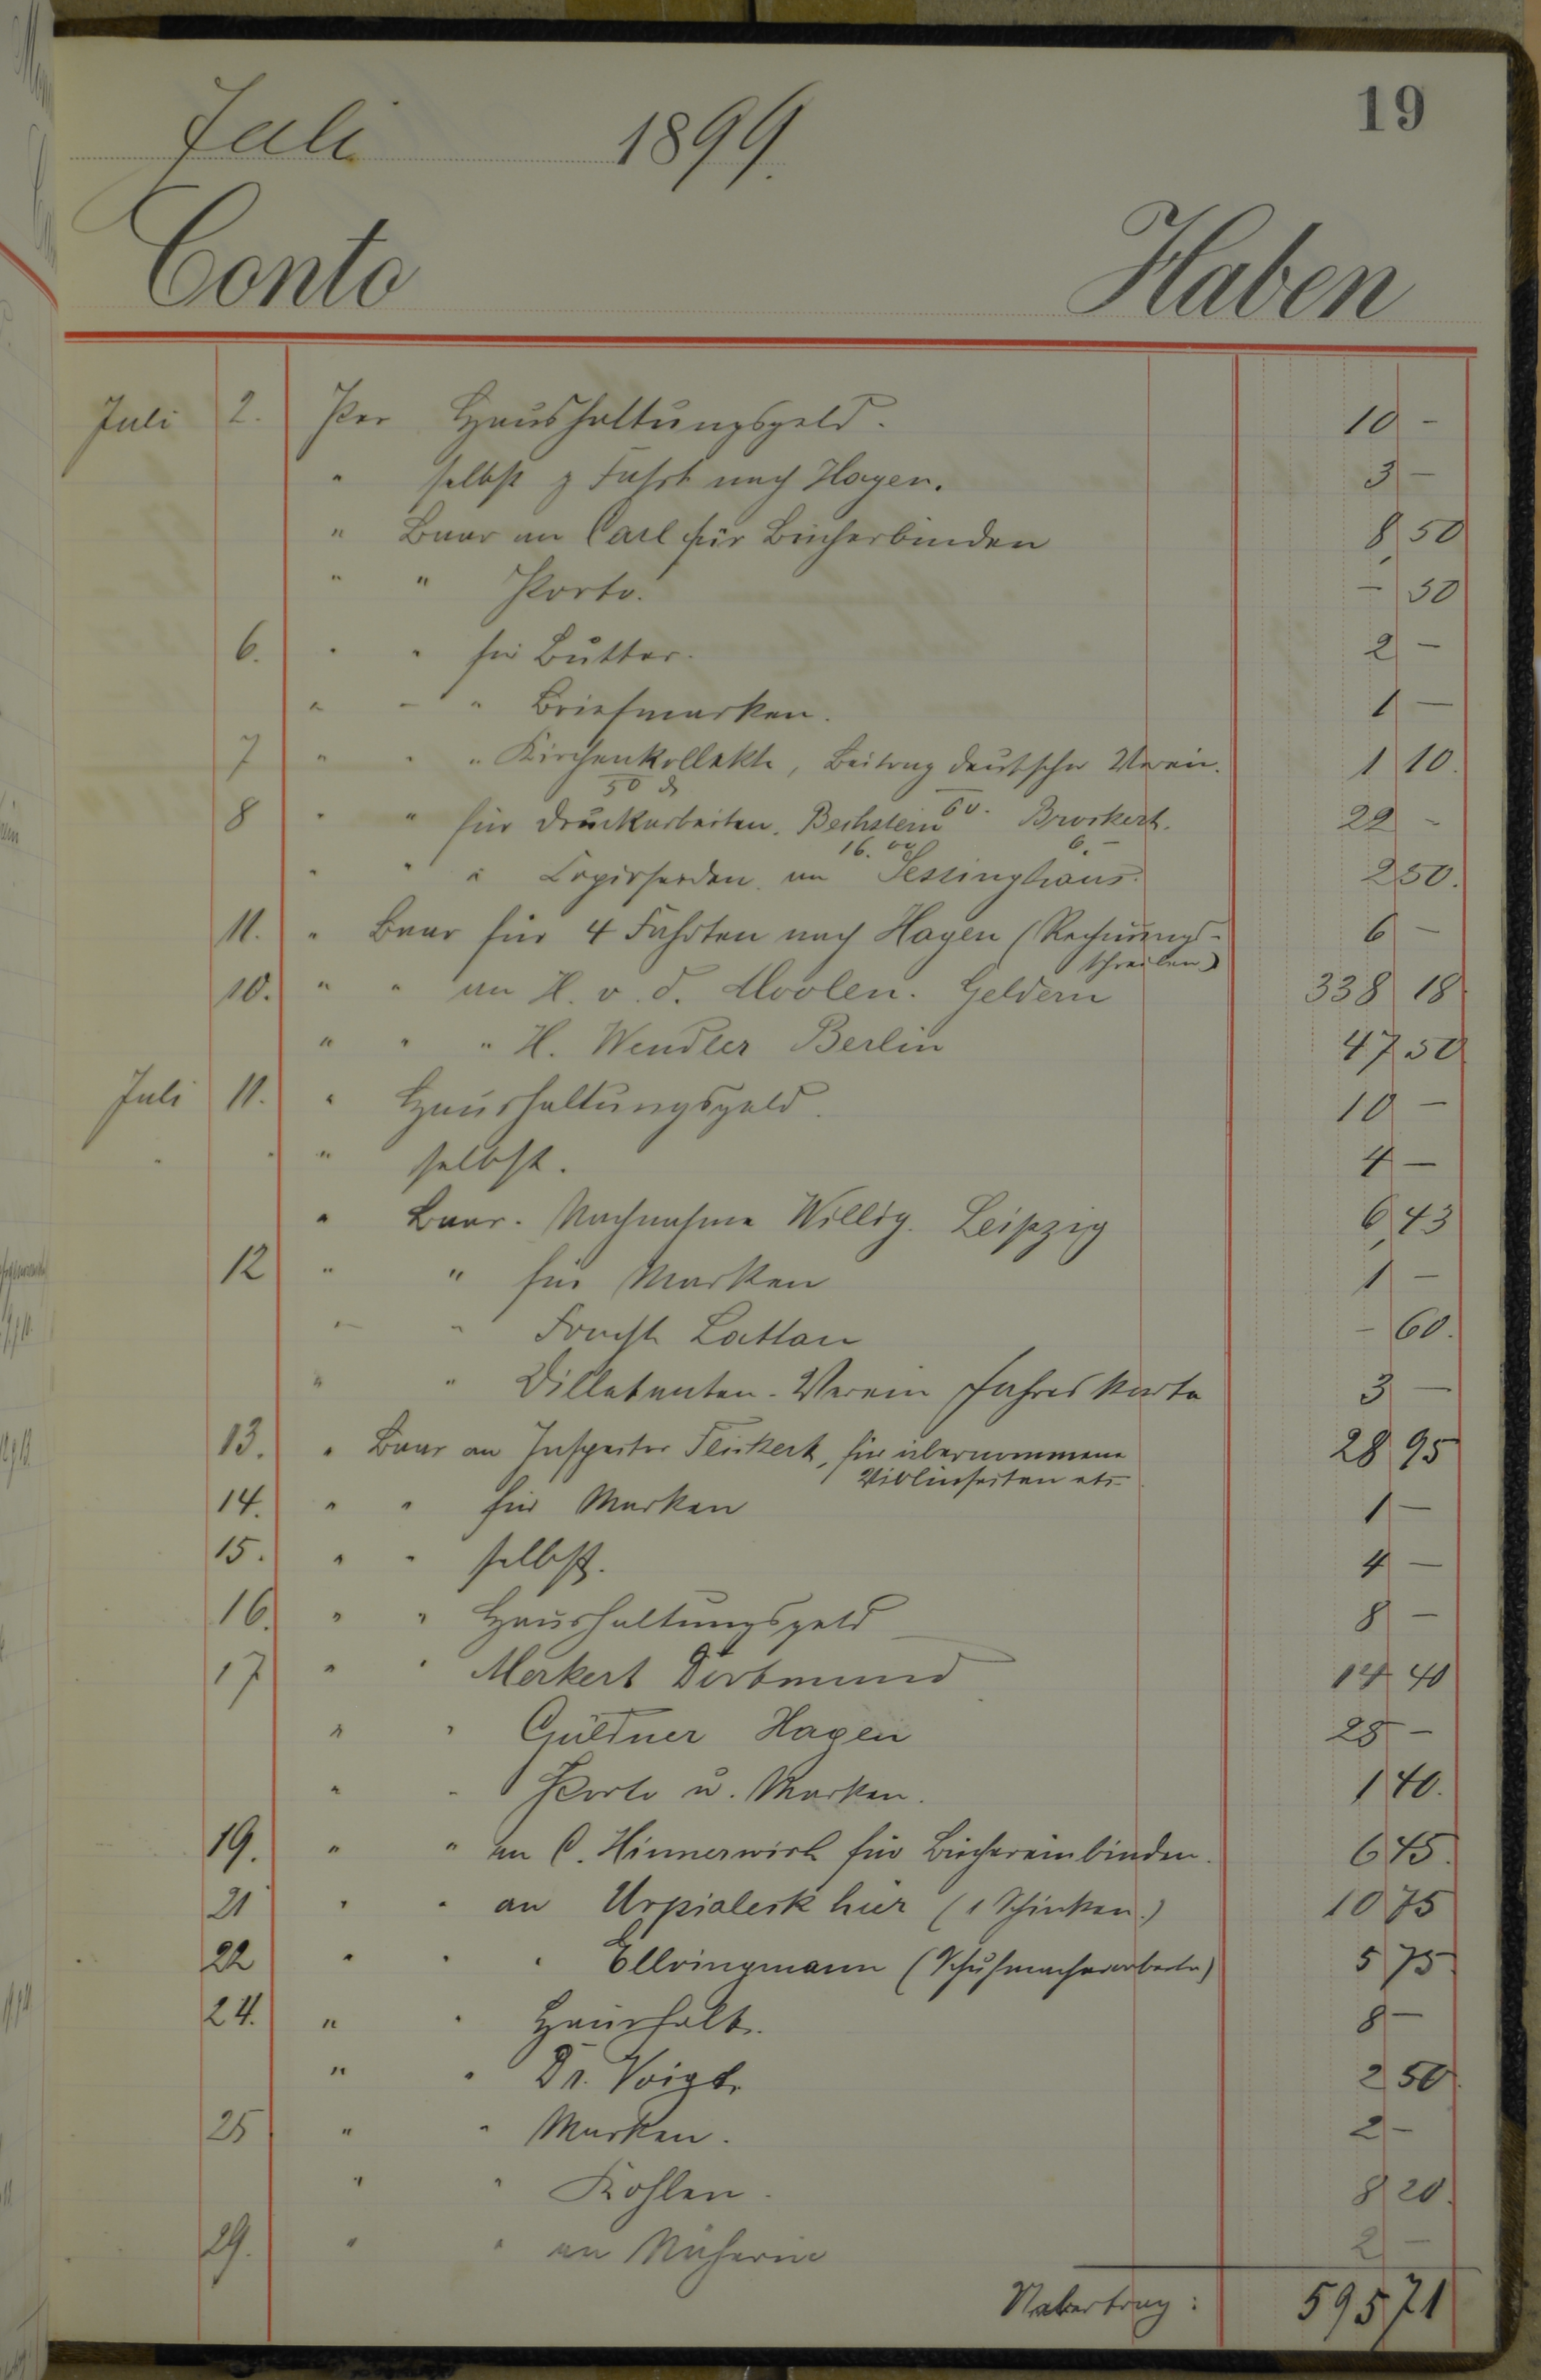 19
Juli 1899.
Conto Haben
Juli 2. Per Haushaltungsgeld. 10 -
" selbst z Fahrt nach Hagen. 3 -
" Baar an Carl für Bücherbinden 8 50
" " Porto. - 50
6. " " für Butter. 2 -
" " " Briefmarken. 1 -
7 " " " Kirchenkollekte, Beitrag deutscher Verein. 1 10.
50 60.
8 " " für Druckarbeiten. Bechstein Brockert. 22 -
16. 6.-
" " " an Sessinghaus. 2 50.
11. " Baar für 4 Fahrten nach Hagen (Rechnungs- 6 -
schreiben)
10. " " an H. v. d. Moolen. Geldern 338 18
" " " H. Wendler Berlin 47 50
Juli 11. " Haushaltungsgeld. 10 -
" selbst. 4 -
" Baar. Nachnahme Willig. Leipzig 6,43
12 " " für Marken 1 -
" " - 60.
" " Dilletanten-Verein Jahreskarte 3 -
13. " Baar an Inspector Fleikert, für übernommene 28 95
Violinseiten etc.
14. " " für Marken 1 -
15. " " selbst. 4 -
16. " " Haushaltungsgeld 8 -
17 " " Merkert Dortmund 14 40
" " Güldner Hagen 25 -
" " Porto u. Marken. 1 40.
19. " " an C. Hinnerwisch für Büchereinbinden. 6 45.
21 " " an Urpialesk hier (1 Schinken.) 10 75
22 " " " Ellringmann (Schuhmacherarbeite) 5 75
24. " " Haushalt. 8 -
" " Dr. Voigt. 2 50.
25 " " Marken. 2 -
" " Kohlen. 8 20.
29. " " an Näherin 2 -
Uebertrag: 595,71